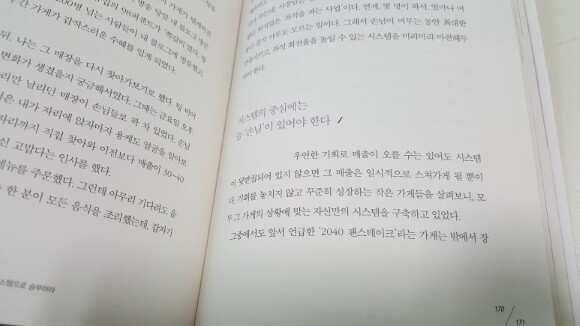 가게가 갑작스러운 수혜를 입게 되었다.
뒤, 나는 그 매장을 다시 찾아가보기로 했다. 팀 마다
변화가 생겼을지 궁금해서였다. 그때는 금요일 오후
파리만 날리던 매장이 손님들로 꽉 차 있었다. 손님
은 내가 자리에 앉자마자 용케도 얼굴을 알아보
자리까지 직접 찾아와 이전보다 매출이 30~40
고맙다는 인사를 했다.
메뉴를 주문했다. 그런데 아무리 기다려도 음
한 분이 모든 음식을 조리했는데, 갑자기
스템으로 승부하라
좌석 회전율을 높일 수 있는 시스템을 미리미리 마련해두
야 한다.
시스템의 중심에는
늘 '손님'이 있어야 한다
우연한 기회로 매출이 오를 수는 있어도 시스템
이 뒷받침되어 있지 않으면 그 매출은 일시적으로 스쳐가게 된 뿐이
다. 기회를 놓치지 않고 꾸준히 성장하는 작은 가게들을 살펴보니, 모
두 그 가게의 상황에 맞는 자신만의 시스템을 구축하고 있었다.
그중에서도 앞서 언급한 '2040 팬스테이크'라는 가게는 밖에서 장
170
171